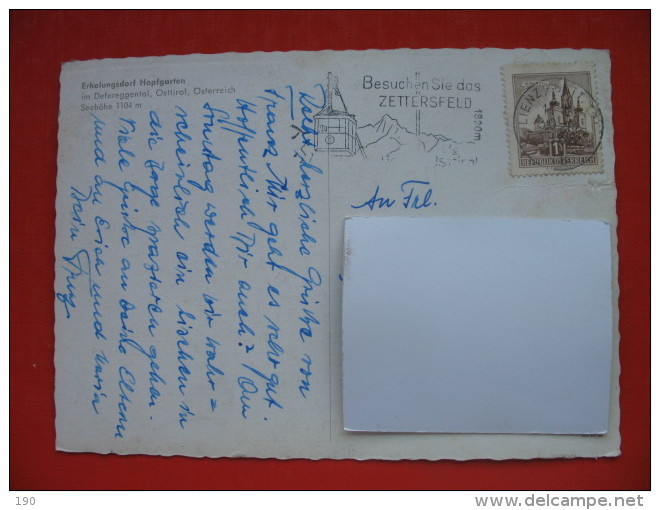 Erholungsdorf Hopfgarten
im Defereggental, Osttirol, Österreich
Seehöhe 1104 m
Besuchen Sie das
ZETTERSFELD
1820m
LIENZ
1S
REPUBLIK ÖSTERREICH
An Frl.
herzliche Grüße von
Franz. Mir geht es sehr gut.
Hoffentlich Dir auch? Am
Sonntag werden wir wahr=
scheinlich ein bischen in
die Berge spazieren gehen.
Viele Grüße an Deine Eltern
und an Erich und Maria
Dein Franz
190
www.delcampe.net